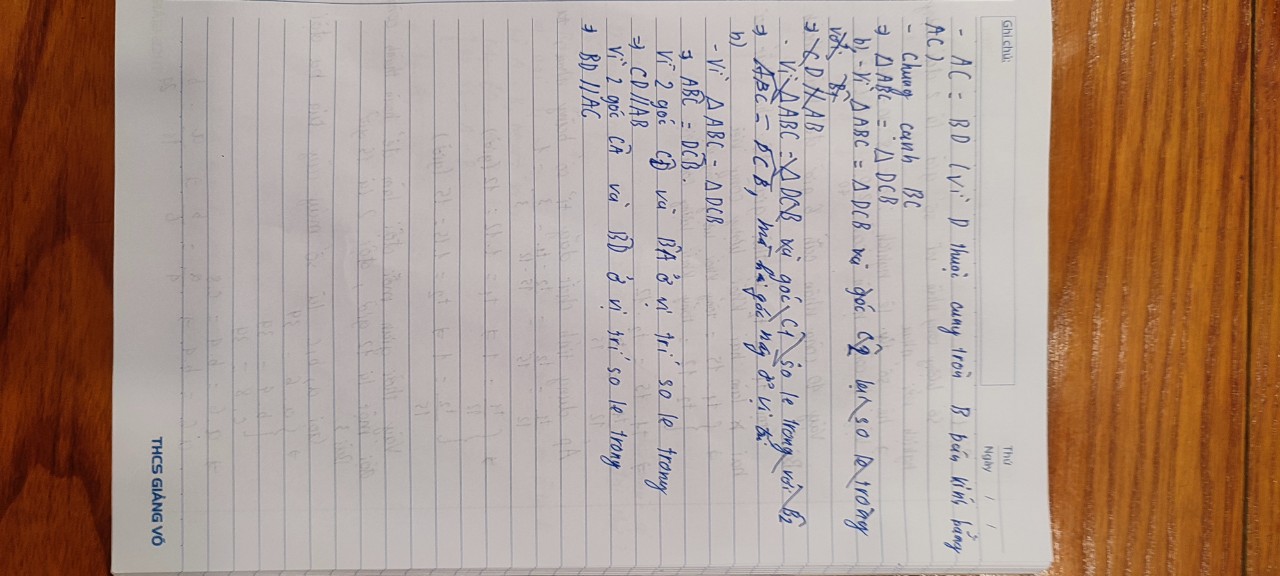 Ghi chú:
Thứ
Ngày / /
- AC = BD (vì D thuộc cung tròn B bán kính bằng
AC)
- Chung cạnh BC
⇒ ΔABC = ΔDCB
b) - Vì ΔABC = ΔDCB và góc Ĉ2 lại so le trong
với B̂2
⇒ CD // AB
- Vì ΔABC = ΔDCB và góc Ĉ1 so le trong với B̂2
⇒ ABC = DCB, mà hai góc này ở vị trí
b)
- Vì ΔABC = ΔDCB
⇒ ABC = DCB.
Vì 2 góc và ở vị trí so le trong
⇒ CD // AB
Vì 2 góc và ở vị trí so le trong
⇒ BD // AC
THCS GIẢNG VÕ